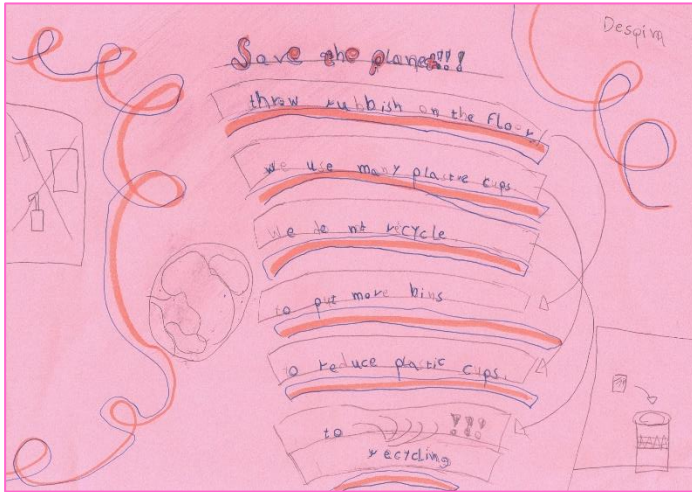 Despina
Save the planet!!!
throw rubbish on the floor.
we use many plastic cups.
We do not recycle
to put more bins
to reduce plastic cups.
to !!!
recycling